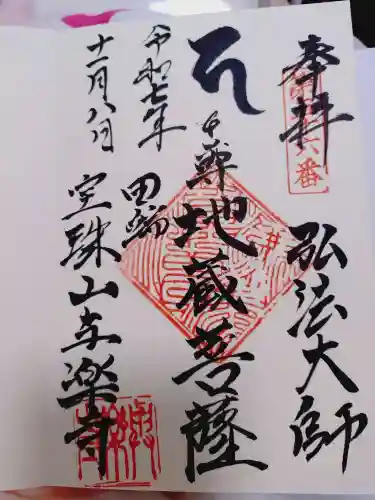 奉拝
弘法大師
本尊地蔵菩薩
令和七年
十一月八日
田端
宝珠山与楽寺